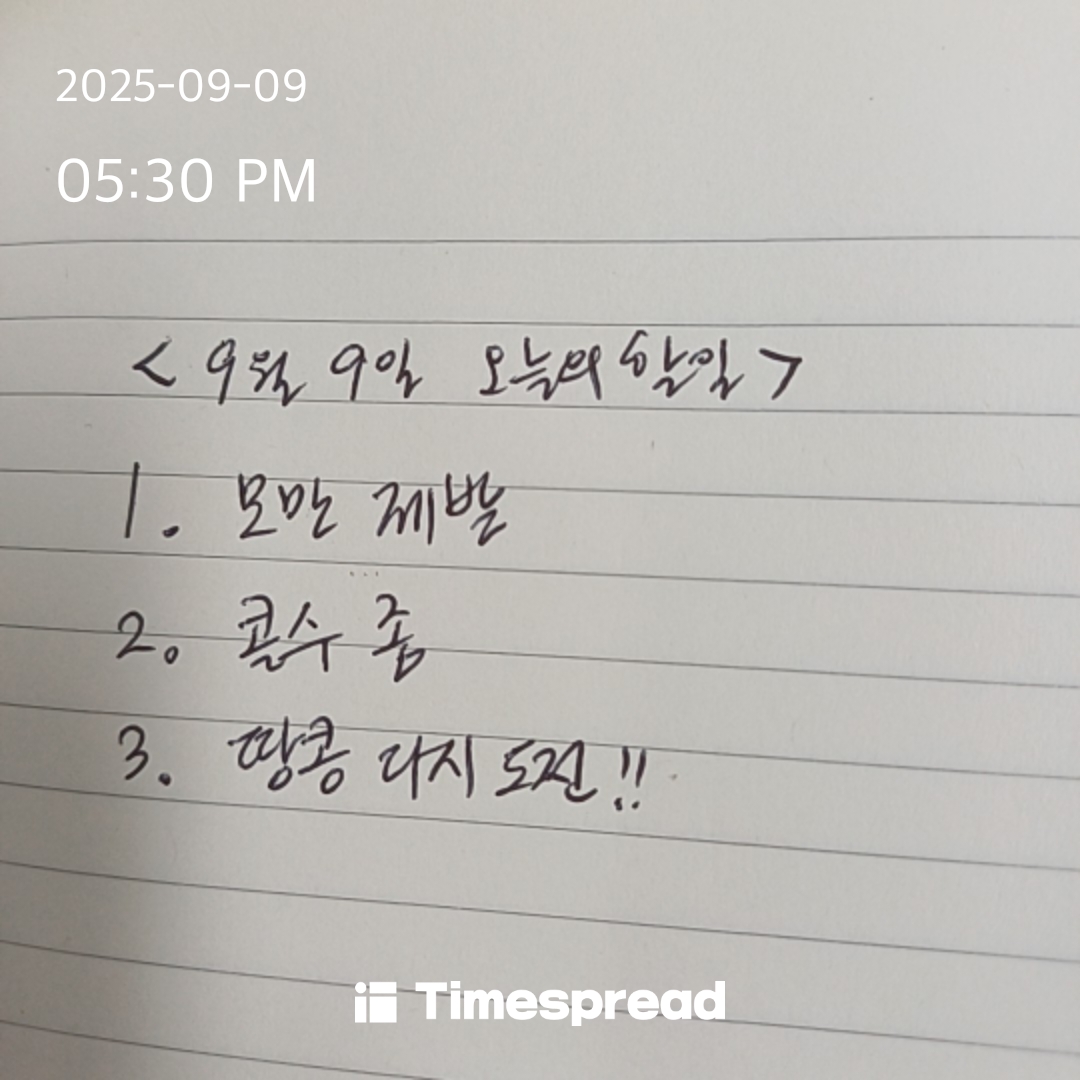 2025-09-09
05:30 PM
< 9월 9일 오늘의 할일 >
1. 모만 제발
2. 콜수 좀
3. 땅콩 다시 도전!!
Timespread